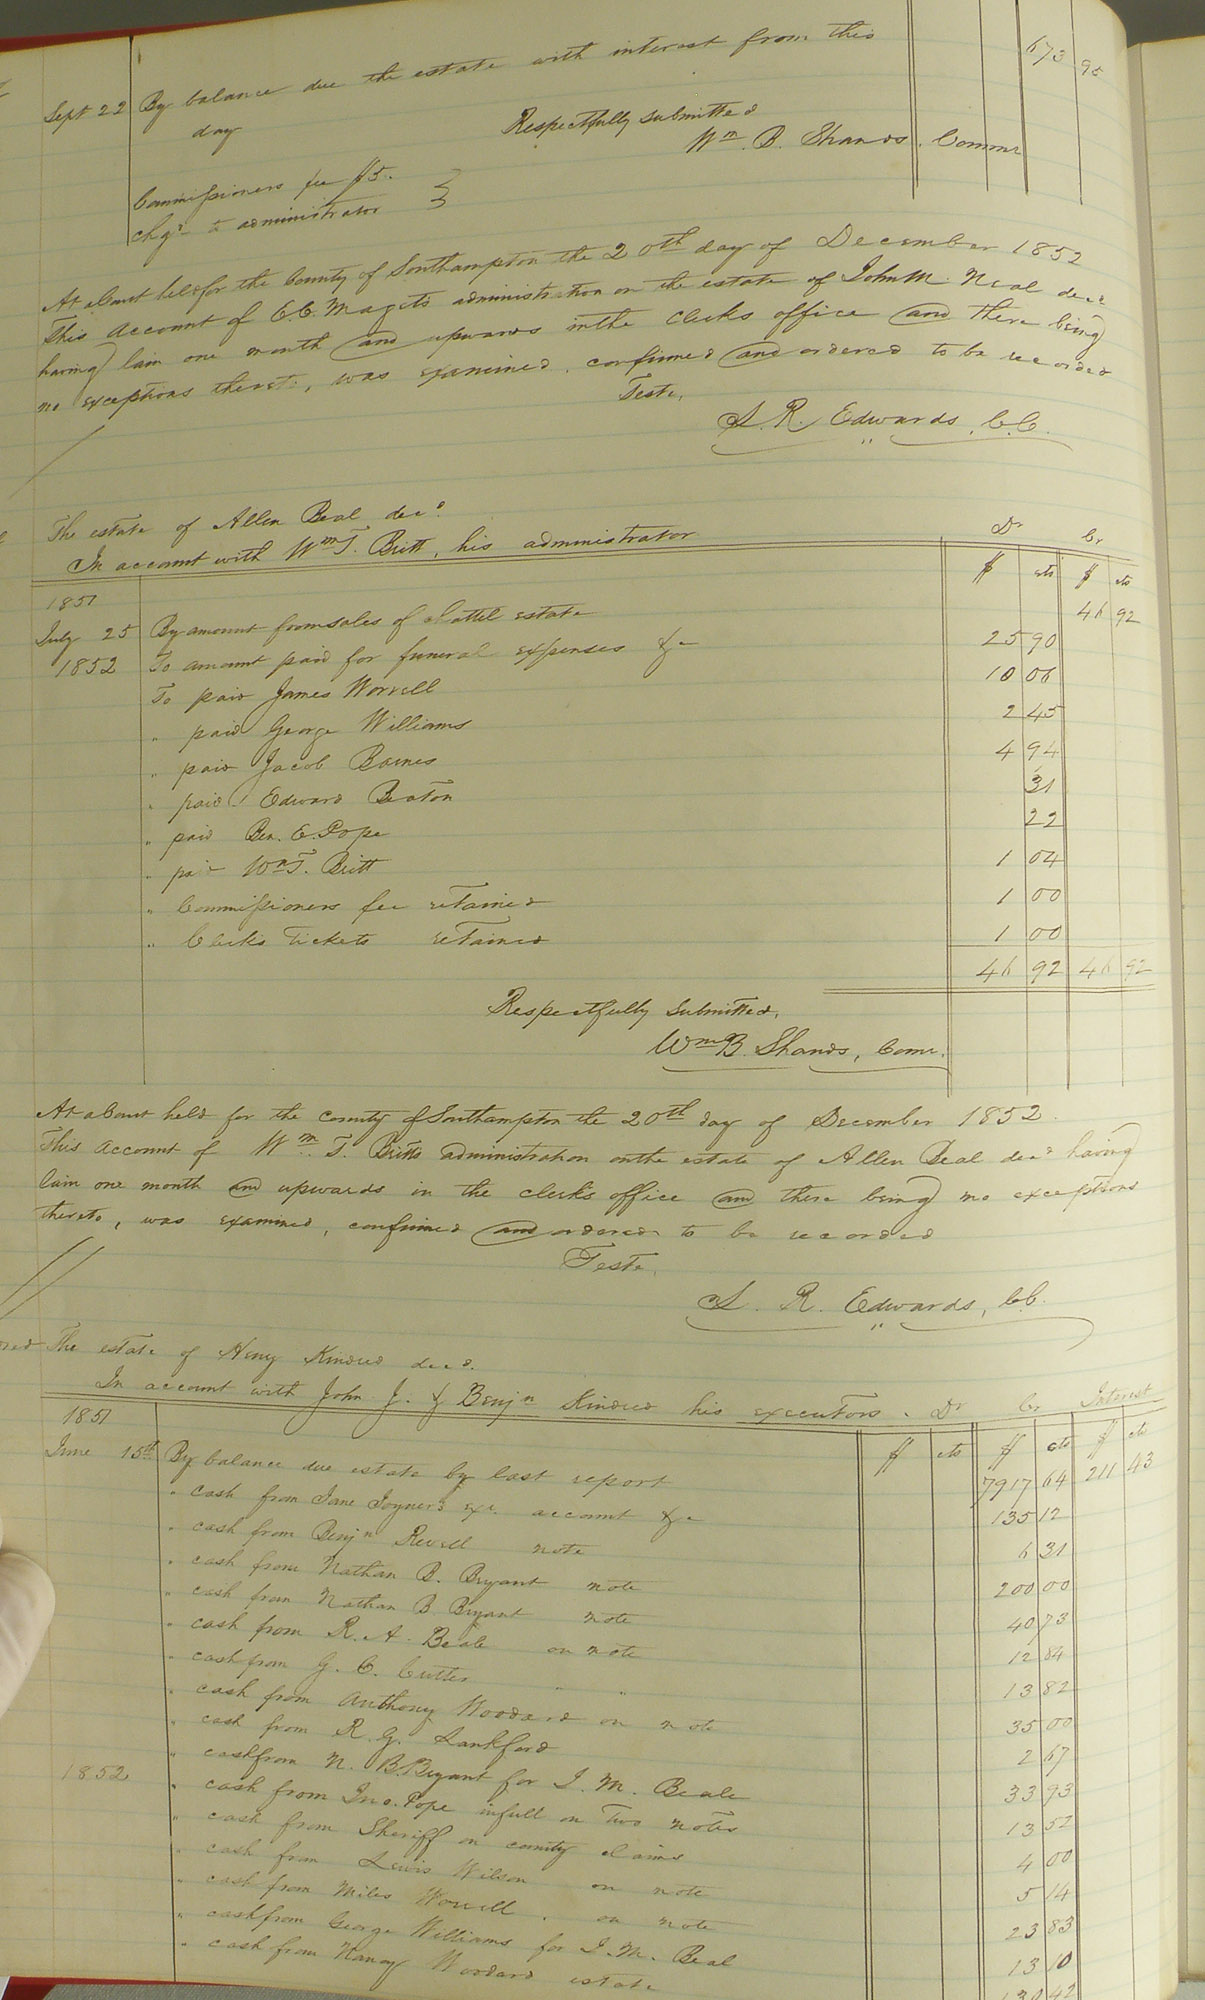 673 95
Sept 22 By balance due the estate with interest from this
day
Respectfully submitted
Wm. B. Shands, Commr
Commissioners fee $5.
chgd to administrator
At a Court held for the County of Southampton the 20th day of December 1852
This account of E.C. Magets administration on the estate of John M. Neal decd
having lain one month and upwards in the clerks office and there being
no exceptions thereto, was examined, confirmed and ordered to be recorded
Teste,
L. R. Edwards, C.C.
The estate of Allen Beal decd.
In account with Wm T. Britt, his administrator Dr Cr
$ cts $ cts
1851
July 25 By amount from sales of chattel estate 46 92
1852 To amount paid for funeral expenses &c 25 90
To paid James Worrell 10 06
" paid George Williams 2 45
" paid Jacob Barnes 4 94
" paid Edward Beaton 31
" paid Ben. E. Pope 22
" paid Wm T. Britt 1 04
" Commissioners fee retained 1 00
" Clerks Tickets retained 1 00
46 92 46 92
Respectfully submitted,
Wm B. Shands, Comr.
At a Court held for the county of Southampton the 20th day of December 1852.
This account of Wm. T. Britts administration on the estate of Allen Beal decd having
lain one month and upwards in the clerk's office and there being no exceptions
thereto, was examined, confirmed and ordered to be recorded
Teste,
L. R. Edwards, C.C.
The estate of Heny Kindred decd.
In account with John J. & Benjn Kindred his executors. Dr Cr Interest
1851 $ cts $ cts $ cts
June 15th By balance due estate by last report 7917 64 211 43
" cash from Jane Joyner's exr. account &c 135 12
" cash from Benjn Revell note 6 31
" cash from Nathan B. Bryant note 200 00
" cash from Nathan B. Bryant note 40 73
" cash from R. A. Beale on note 12 84
" cash from G. C. Cutler " " 13 82
" cash from Anthony Woodard on note 35 00
" cash from R. G. Lankford 2 67
" cash from N. B. Bryant for J. M. Beale 33 93
1852 " cash from Jno. Pope in full on Two notes 13 52
" cash from Sheriff on county claims 4 00
" cash from Lewis Wilson on note 5 14
" cash from Miles Worrell. on note 23 83
" cash from George Williams for J. M. Beal 13 10
" cash from Nancy Woodard estate 130 42